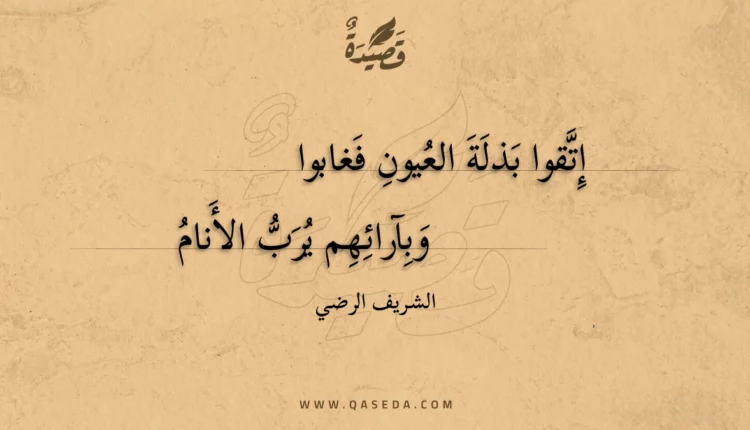 قَصِيْدَةٌ
إِتَّقوا بَذلَةَ العُيونِ فَغابوا
وَبِآرائِهِم يُرَبُّ الأَنامُ
الشريف الرضي
WWW.QASEDA.COM